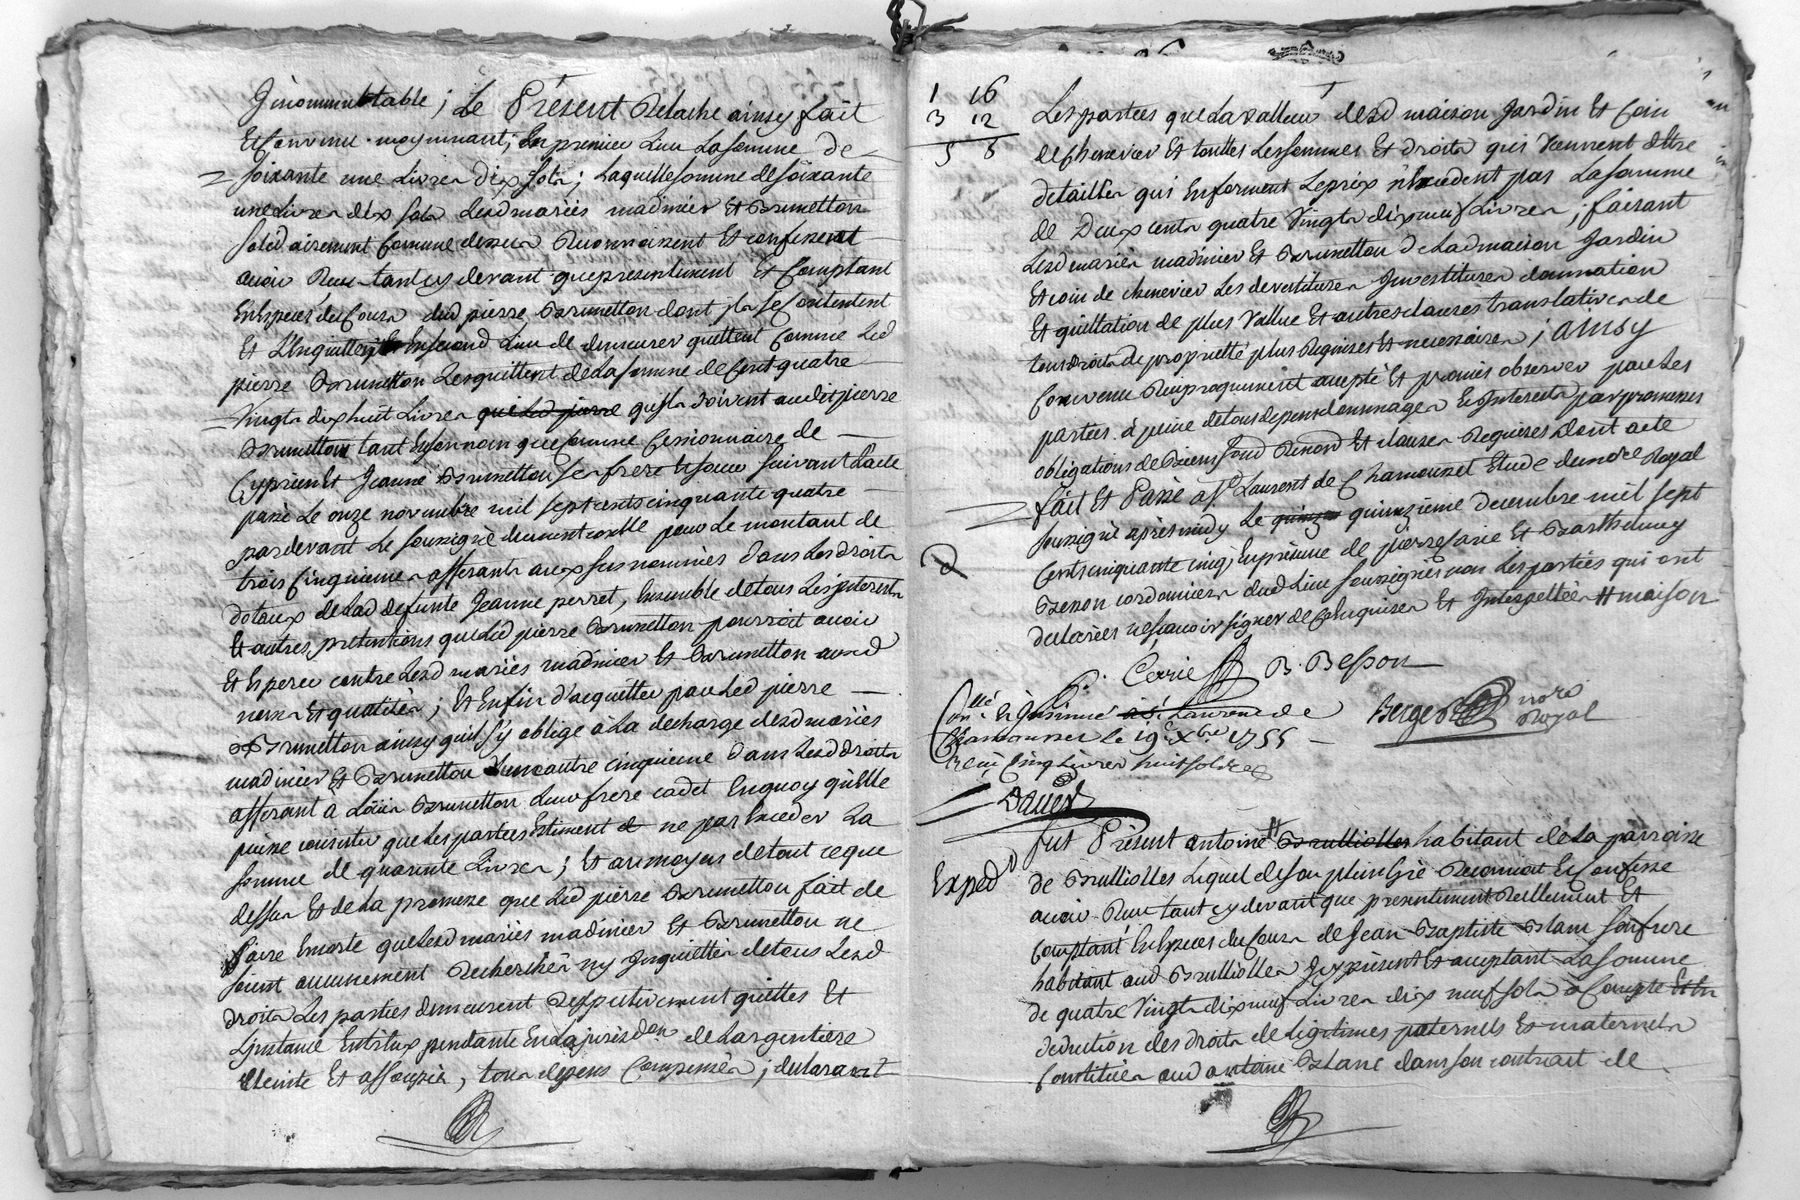 Jncommutable ; Le Présent Relache ainsy fait
Et Convenu moyennant ; En premier Lieu La somme de
soixante une Livres dix sols ; Laquelle somme de soixante
une Livres dix sols Lesd mariés madinier Et Brunetton
solidairement Comme dessus Reconnoissent Et confessent
avoir Reçu tant cy devant que presentement Et Comptant
En Especes du Cours dud pierre Brunetton dont jls se Contentent
Et L'En quittent Et En second Lieu de demeurer quittent Comme Led
pierre Brunetton Les quittent de La somme de Cent quatre
Vingts dix huit Livres que Led pierre qu'jls doivent audit pierre
Brunetton tant En son nom que Comme Cessionnaire de
Cyprien Et Jeanne Brunetton ses frere Et soeur suivant L'acte
passé Le onze novembre mil sept cents cinquante quatre
pardevant Le soussigné deument controllé pour Le montant de
trois Cinquiemes afferants aux sus nommés dans Les droits
dotaux de Lad defunte Jeanne perret, Ensemble de tous Les jnterests
Et autres pretentions que Led pierre Brunetton pourroit avoir
Et Esperer contre Lesd mariés madinier Et Brunetton auxd
noms Et qualités ; Et Enfin d'acquitter par Led pierre
Brunetton ainsy qu'il s'y oblige à La decharge desd mariés
madinier Et Brunetton d'une autre cinquieme dans Lesd droits
afferant a Loüis Brunetton Leur frere cadet En quoy qu'Elle
puisse consister que Les parties Estiment ne pas Exceder La
somme de quarente Livres ; Et au moyen de tout ce que
dessus Et de La promesse que Led pierre Brunetton fait de
faire En sorte que Lesd mariés madinier Et Brunetton ne
soient aucunement Recherchés ny Jnquiettés de tous Lesd
droits Les parties demeurent Respectivement quittes Et
L'jnstance Entr'Eux pendante En La jurisdon de Largentiere
Eteinte Et assoupie, tous depens Compensés ; declarant
1 16
3 12
5 8
Les parties que La valleur desd maison Jardin Et Coin
de Chenevier Et touttes Les sommes Et droits qui Viennent d'Etre
detaillés qui En forment Le prix n'Excedent pas La somme
de Deux cents quatre Vingts dix neuf Livres ; faisant
Lesd mariés madinier Et Brunetton de Lad maison Jardin
Et coin de chenevier Les devestitures Jnvestitures donnation
Et quittation de plus Vallue Et autres clauses translatives de
tous droits de proprietté plus Requises Et necessaires ; ainsy
Convenu Reciproquement accepté Et promis observer par Les
parties a peine de tous depens dommages Et Jnterests par promesses
obligations de Biens soud Renond Et clauses Requises Dont acte
fait Et Passé a St Laurent de Chamousset Etude du nore Royal
soussigné après midy Le quinze quinzieme decembre mil sept
cents cinquante cinq, En presence de pierre Corie Et Barthelemy
Besson cordonniers dud Lieu soussignés non Les parties qui ont
declarées ne sçavoir signer de Ce Enquises Et Jnterpellées # maison
P. Corie B. Besson
Berger nore Royal
Conllé Et jnsinué a St Laurent de
Chamousset le 19e Xbre 1755
Reçu Cinq Livres huit sols
Expedd
fut Présent antoine # Brulliolles habitant de La parroisse
de Brulliolles Lequel de son plein Gré Reconnoit Et Confesse
avoir Reçu tant cy devant que presentement Réellement Et
Comptant En Especes du Cours de Jean Baptiste Blanc son frere
habitant aud Brulliolles Jcy present Et acceptant La somme
de quatre Vingts dix neuf Livres dix neuf sols a Compte Et En
deduction des droits de Legitimes paternels Et maternels
Constitués aud antoine Blanc dans son contract de